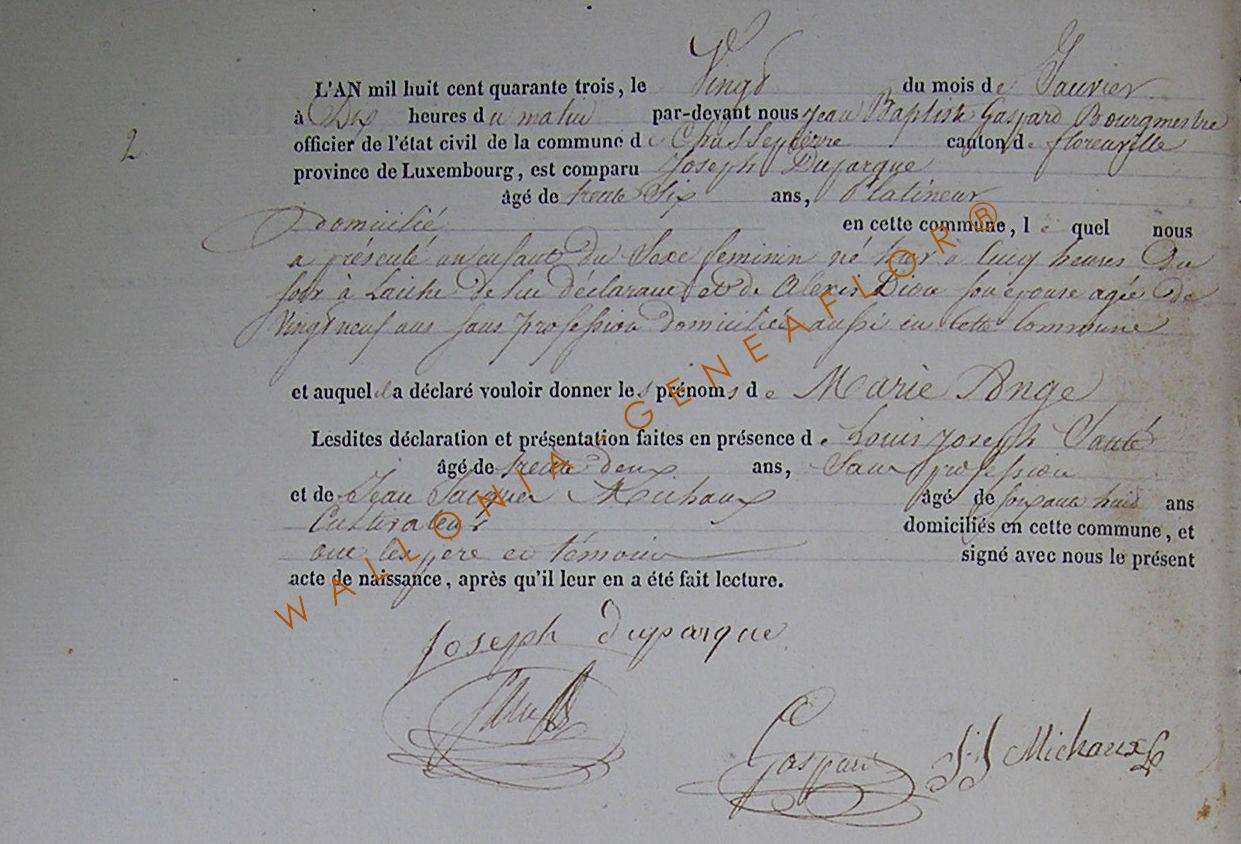 L'AN mil huit cent quarante trois, le Vingt du mois de Janvier
2
à Dix heures du matin par-devant nous Jean Baptiste Gaspard Bourgmestre
officier de l'état civil de la commune de Chassepierre canton de florenville
province de Luxembourg, est comparu Joseph Duparque
âgé de trente Six ans, Platineur
Domicilié en cette commune, le quel nous
a présenté un enfant du Sexe feminin né hier à cinq heures Du
soir à Laiche de lui déclarant et de Alexis Dion son épouse agée de
Vingt neuf ans sans profession domiciliée aussi en cette Commune
et auquel il a déclaré vouloir donner les prénoms de Marie Ange
Lesdites déclaration et présentation faites en présence de Louis Joseph
âgé de trente deux ans, Sans profession
et de Jean Jacques Michaux âgé de soixante huit ans
Cultivateur domiciliés en cette commune, et
ont les pere et témoins signé avec nous le présent
acte de naissance, après qu'il leur en a été fait lecture.
Joseph duparque
Gaspard
J J Michaux
WALLONIA-GENEAFLOR®